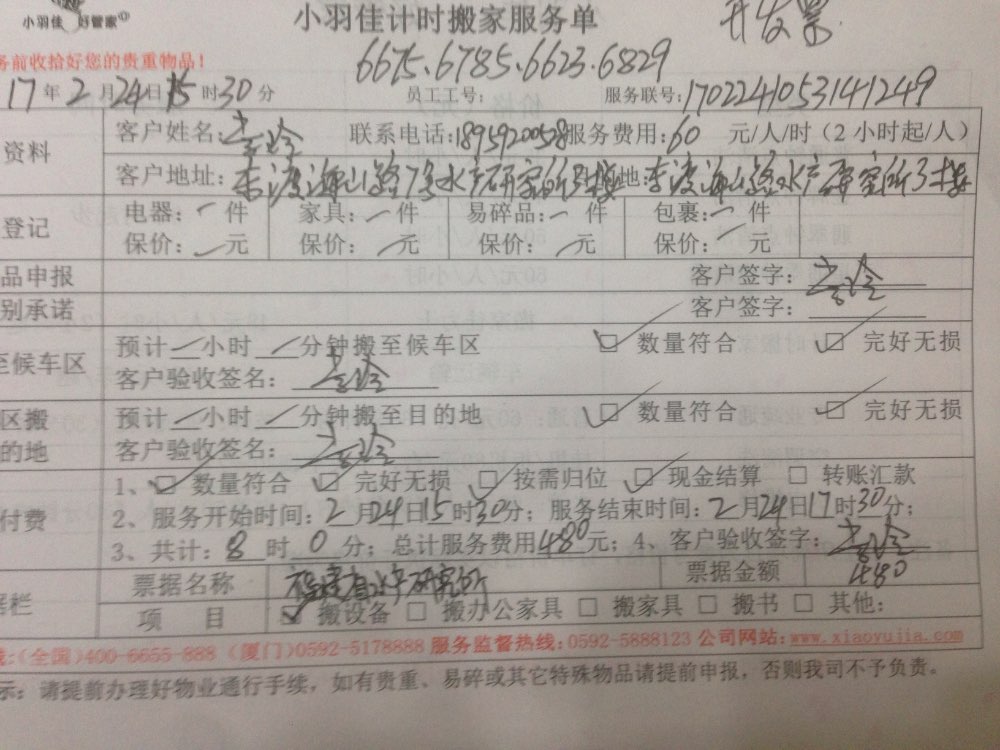 小羽佳 好管家®
小羽佳计时搬家服务单
开发票
务前收拾好您的贵重物品！
6675、6785、6623、6829
17年2月24日15时30分 员工工号： 服务联号：1702241053141249
资料 客户姓名： 联系电话：18959200528 服务费用：60 元/人/时（2小时起/人）
客户地址：东渡海山路 水产研究所 地：东渡海山路 水产研究所3楼
登记 电器：一件 家具：一件 易碎品：一件 包裹：一件
保价：一元 保价：一元 保价：一元 保价：一元
品申报 客户签字：
别承诺 客户签字：
至候车区 预计一小时一分钟搬至候车区 ☑ 数量符合 ☑ 完好无损
客户验收签名：
区搬 预计一小时一分钟搬至目的地 ☑ 数量符合 ☑ 完好无损
的地 客户验收签名：
1、☑ 数量符合 ☑ 完好无损 ☑ 按需归位 ☑ 现金结算 □ 转账汇款
付费 2、服务开始时间：2月24日15时30分；服务结束时间：2月24日17时30分；
3、共计：8时0分；总计服务费用480元；4、客户验收签字：
据栏 票据名称 福建省水产研究所 票据金额 480
项 目 ☑ 搬设备 □ 搬办公家具 □ 搬家具 □ 搬书 □ 其他：
线：(全国)400-6655-888 (厦门)0592-5178888 服务监督热线：0592-5888123 公司网站：www.xiaoyujia.com
示：请提前办理好物业通行手续，如有贵重、易碎或其它特殊物品请提前申报，否则我司不予负责。